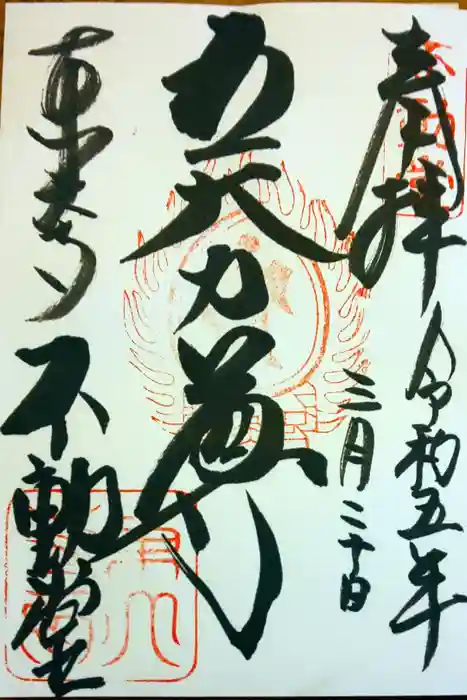 奉拝 令和五年
三月二十日
五大力菩薩
不動堂